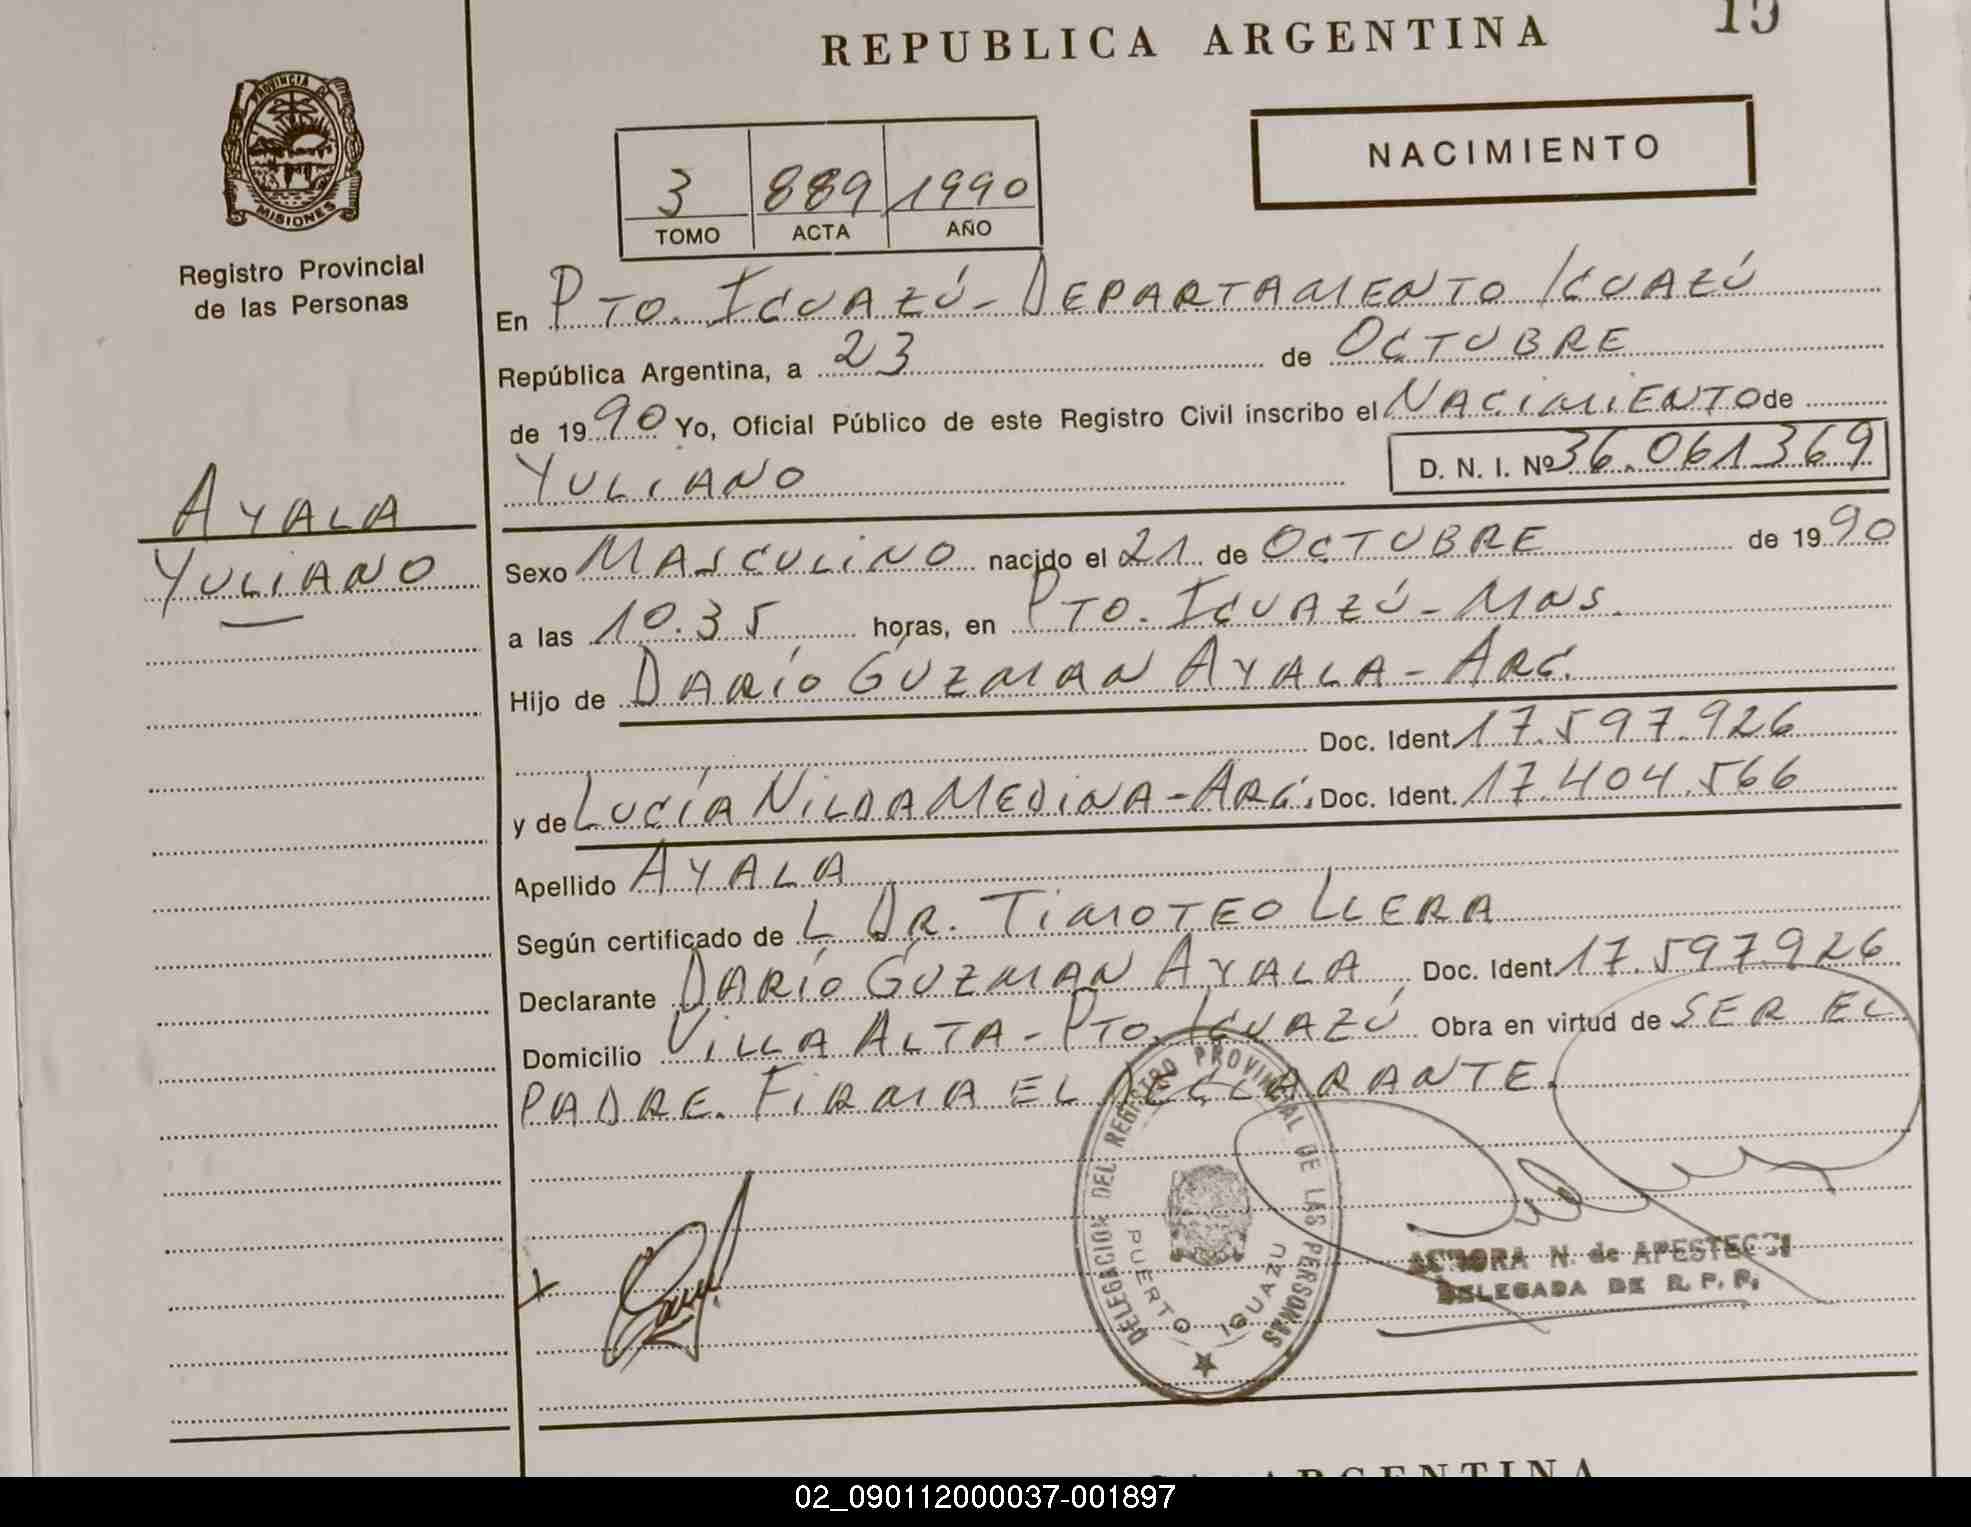 REPUBLICA ARGENTINA
15
PROVINCIA DE
MISIONES
Registro Provincial
de las Personas
NACIMIENTO
3 889 1990
TOMO ACTA AÑO
En PTO. IGUAZÚ - DEPARTAMENTO IGUAZÚ
República Argentina, a 23 de OCTUBRE
de 1990 Yo, Oficial Público de este Registro Civil inscribo el NACIMIENTO de
YULIANO D. N. I. Nº 36.061369
AYALA
YULIANO
Sexo MASCULINO nacido el 21 de OCTUBRE de 1990
a las 10.35 horas, en PTO. IGUAZÚ - MNS.
Hijo de DARÍO GUZMAN AYALA - ARG.
Doc. Ident. 17.597.926
y de LUCÍA NILDA MEDINA - ARG. Doc. Ident. 17.404.566
Apellido AYALA
Según certificado de L DR. TIMOTEO LLERA
Declarante DARÍO GUZMAN AYALA Doc. Ident. 17.597.926
Domicilio VILLA ALTA - PTO. IGUAZÚ Obra en virtud de SER EL
PADRE. FIRMA EL DECLARANTE.
DELEGACION DEL REGISTRO PROVINCIAL DE LAS PERSONAS
PUERTO IGUAZU
N. de
DELEGADA DE R. P. P.
ARGENTINA
02_090112000037-001897